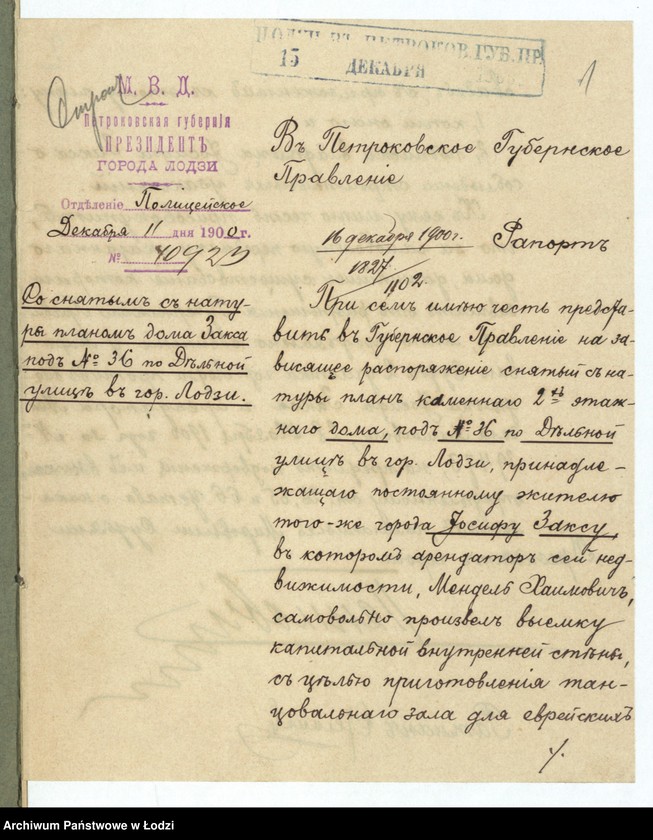 ПОЛУЧ. ВЪ ПЕТРОКОВ. ГУБ. ПР.
15 ДЕКАБРЯ
1
М. В. Д.
Петроковская губернія
ПРЕЗИДЕНТЪ
ГОРОДА ЛОДЗИ
Отдѣленіе Полицейское
Декабря 11 дня 1900 г.
№ 40923
Со снятымъ съ нату-
ры планомъ дома Закса
подъ № 36 по Дѣльной
улицѣ въ гор. Лодзи.
Въ Петроковское Губернское
Правленіе
16 декабря 1900 г.
1827
1102
Рапортъ
При семъ имѣю честь предста-
вить въ Губернское Правленіе на за-
висящее распоряженіе снятый съ на-
туры планъ каменнаго 2хъ этаж-
наго дома, подъ № 36 по Дѣльной
улицѣ въ гор. Лодзи, принадле-
жащаго постоянному жителю
того-же города Іосифу Заксу,
въ которомъ арендаторъ сей нед-
вижимости, Мендель Хаимовичъ,
самовольно произвелъ выемку
капитальной внутренней стѣны,
съ цѣлью приготовленія тан-
цовальнаго зала для еврейскихъ
Archiwum Państwowe w Łodzi